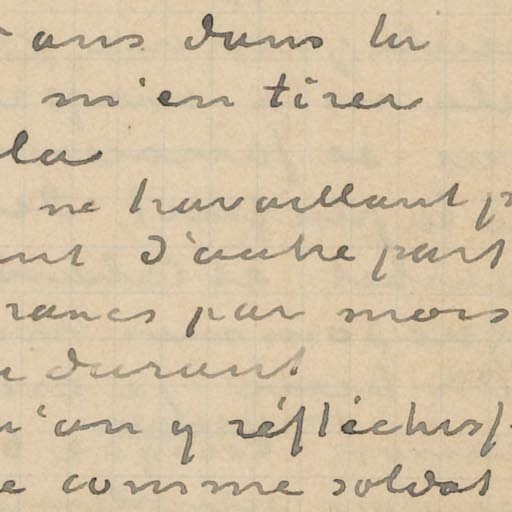 ans dans la
m'en tirer
la
ne travaillant p
nt d'autre part
rancs par mois
durant
u'on y réfléchiss
e comme soldat